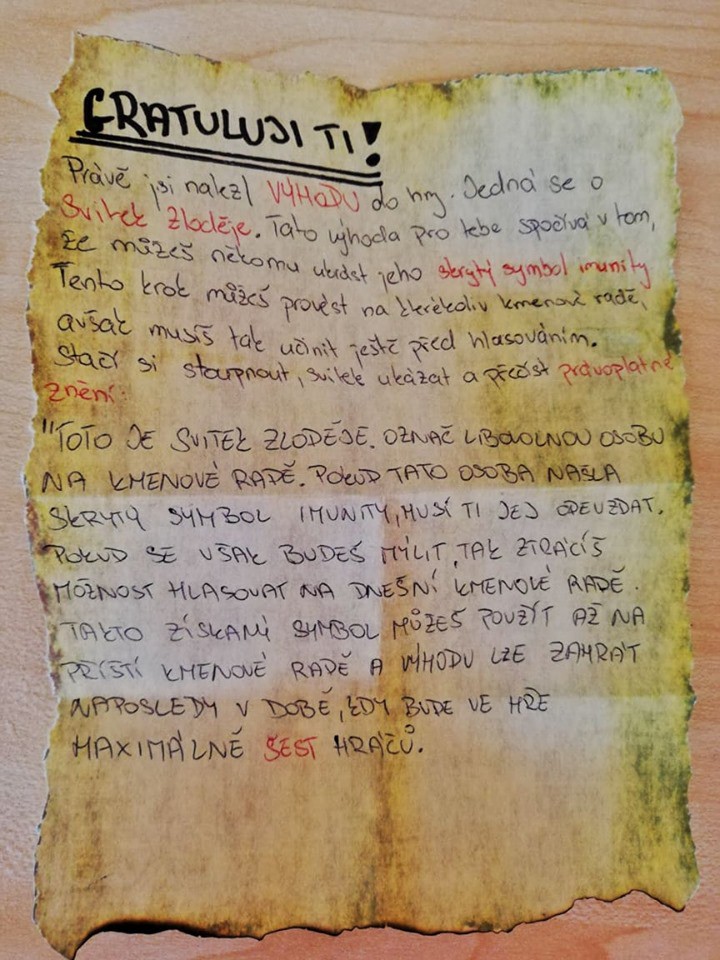 GRATULUJI TI!
Právě jsi nalezl VÝHODU do hry. Jedná se o
Svitek Zloděje. Tato výhoda pro tebe spočívá v tom,
že můžeš někomu ukrást jeho skrytý symbol imunity
Tento krok můžeš provést na kterékoliv kmenové radě,
avšak musíš tak učinit ještě před hlasováním.
Stačí si stoupnout, svitek ukázat a přečíst právoplatné
znění:
"TOTO JE SVITEK ZLODĚJE. OZNAČ LIBOVOLNOU OSOBU
NA KMENOVÉ RADĚ. POKUD TATO OSOBA NAŠLA
SKRYTÝ SYMBOL IMUNITY, MUSÍ TI JEJ ODEVZDAT.
POKUD SE VŠAK BUDEŠ MÝLIT, TAK ZTRÁCÍŠ
MOŽNOST HLASOVAT NA DNEŠNÍ KMENOVÉ RADĚ.
TAKTO ZÍSKANÝ SYMBOL MŮŽEŠ POUŽÍT AŽ NA
PŘÍŠTÍ KMENOVÉ RADĚ A VÝHODU LZE ZAHRÁT
NAPOSLEDY V DOBĚ, KDY BUDE VE HŘE
MAXIMÁLNĚ ŠEST HRÁČŮ.